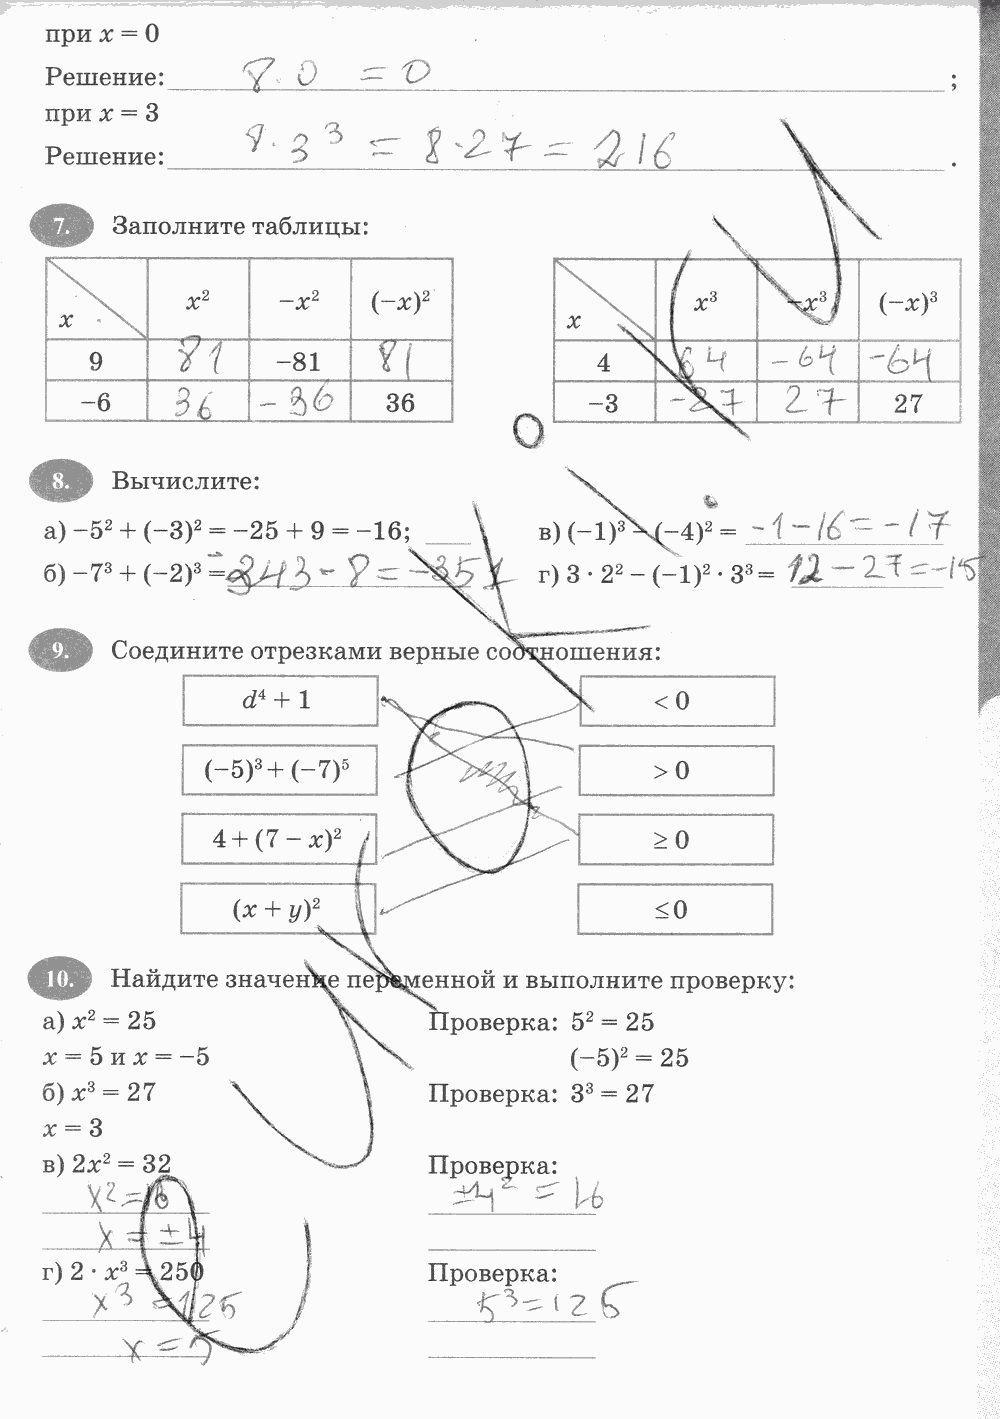 при x = 0
Решение: 8 · 0 = 0 ;
при x = 3
Решение: 8 · 3³ = 8 · 27 = 216 .
7. Заполните таблицы:
x x² −x² (−x)²
9 81 −81 81
−6 36 −36 36
x x³ −x³ (−x)³
4 64 −64 −64
−3 −27 27 27
8. Вычислите:
а) −5² + (−3)² = −25 + 9 = −16;
в) (−1)³ − (−4)² = −1−16 = −17
б) −7³ + (−2)³ = −343 − 8 = −351
г) 3 · 2² − (−1)² · 3³ = 12 − 27 = −15
9. Соедините отрезками верные соотношения:
d⁴ + 1 < 0
(−5)³ + (−7)⁵ > 0
4 + (7 − x)² ≥ 0
(x + y)² ≤ 0
10. Найдите значение переменной и выполните проверку:
а) x² = 25 Проверка: 5² = 25
x = 5 и x = −5 (−5)² = 25
б) x³ = 27 Проверка: 3³ = 27
x = 3
в) 2x² = 32 Проверка:
x² = 16 ±4² = 16
x = ±4
г) 2 · x³ = 250 Проверка:
x³ = 125 5³ = 125
x = 5